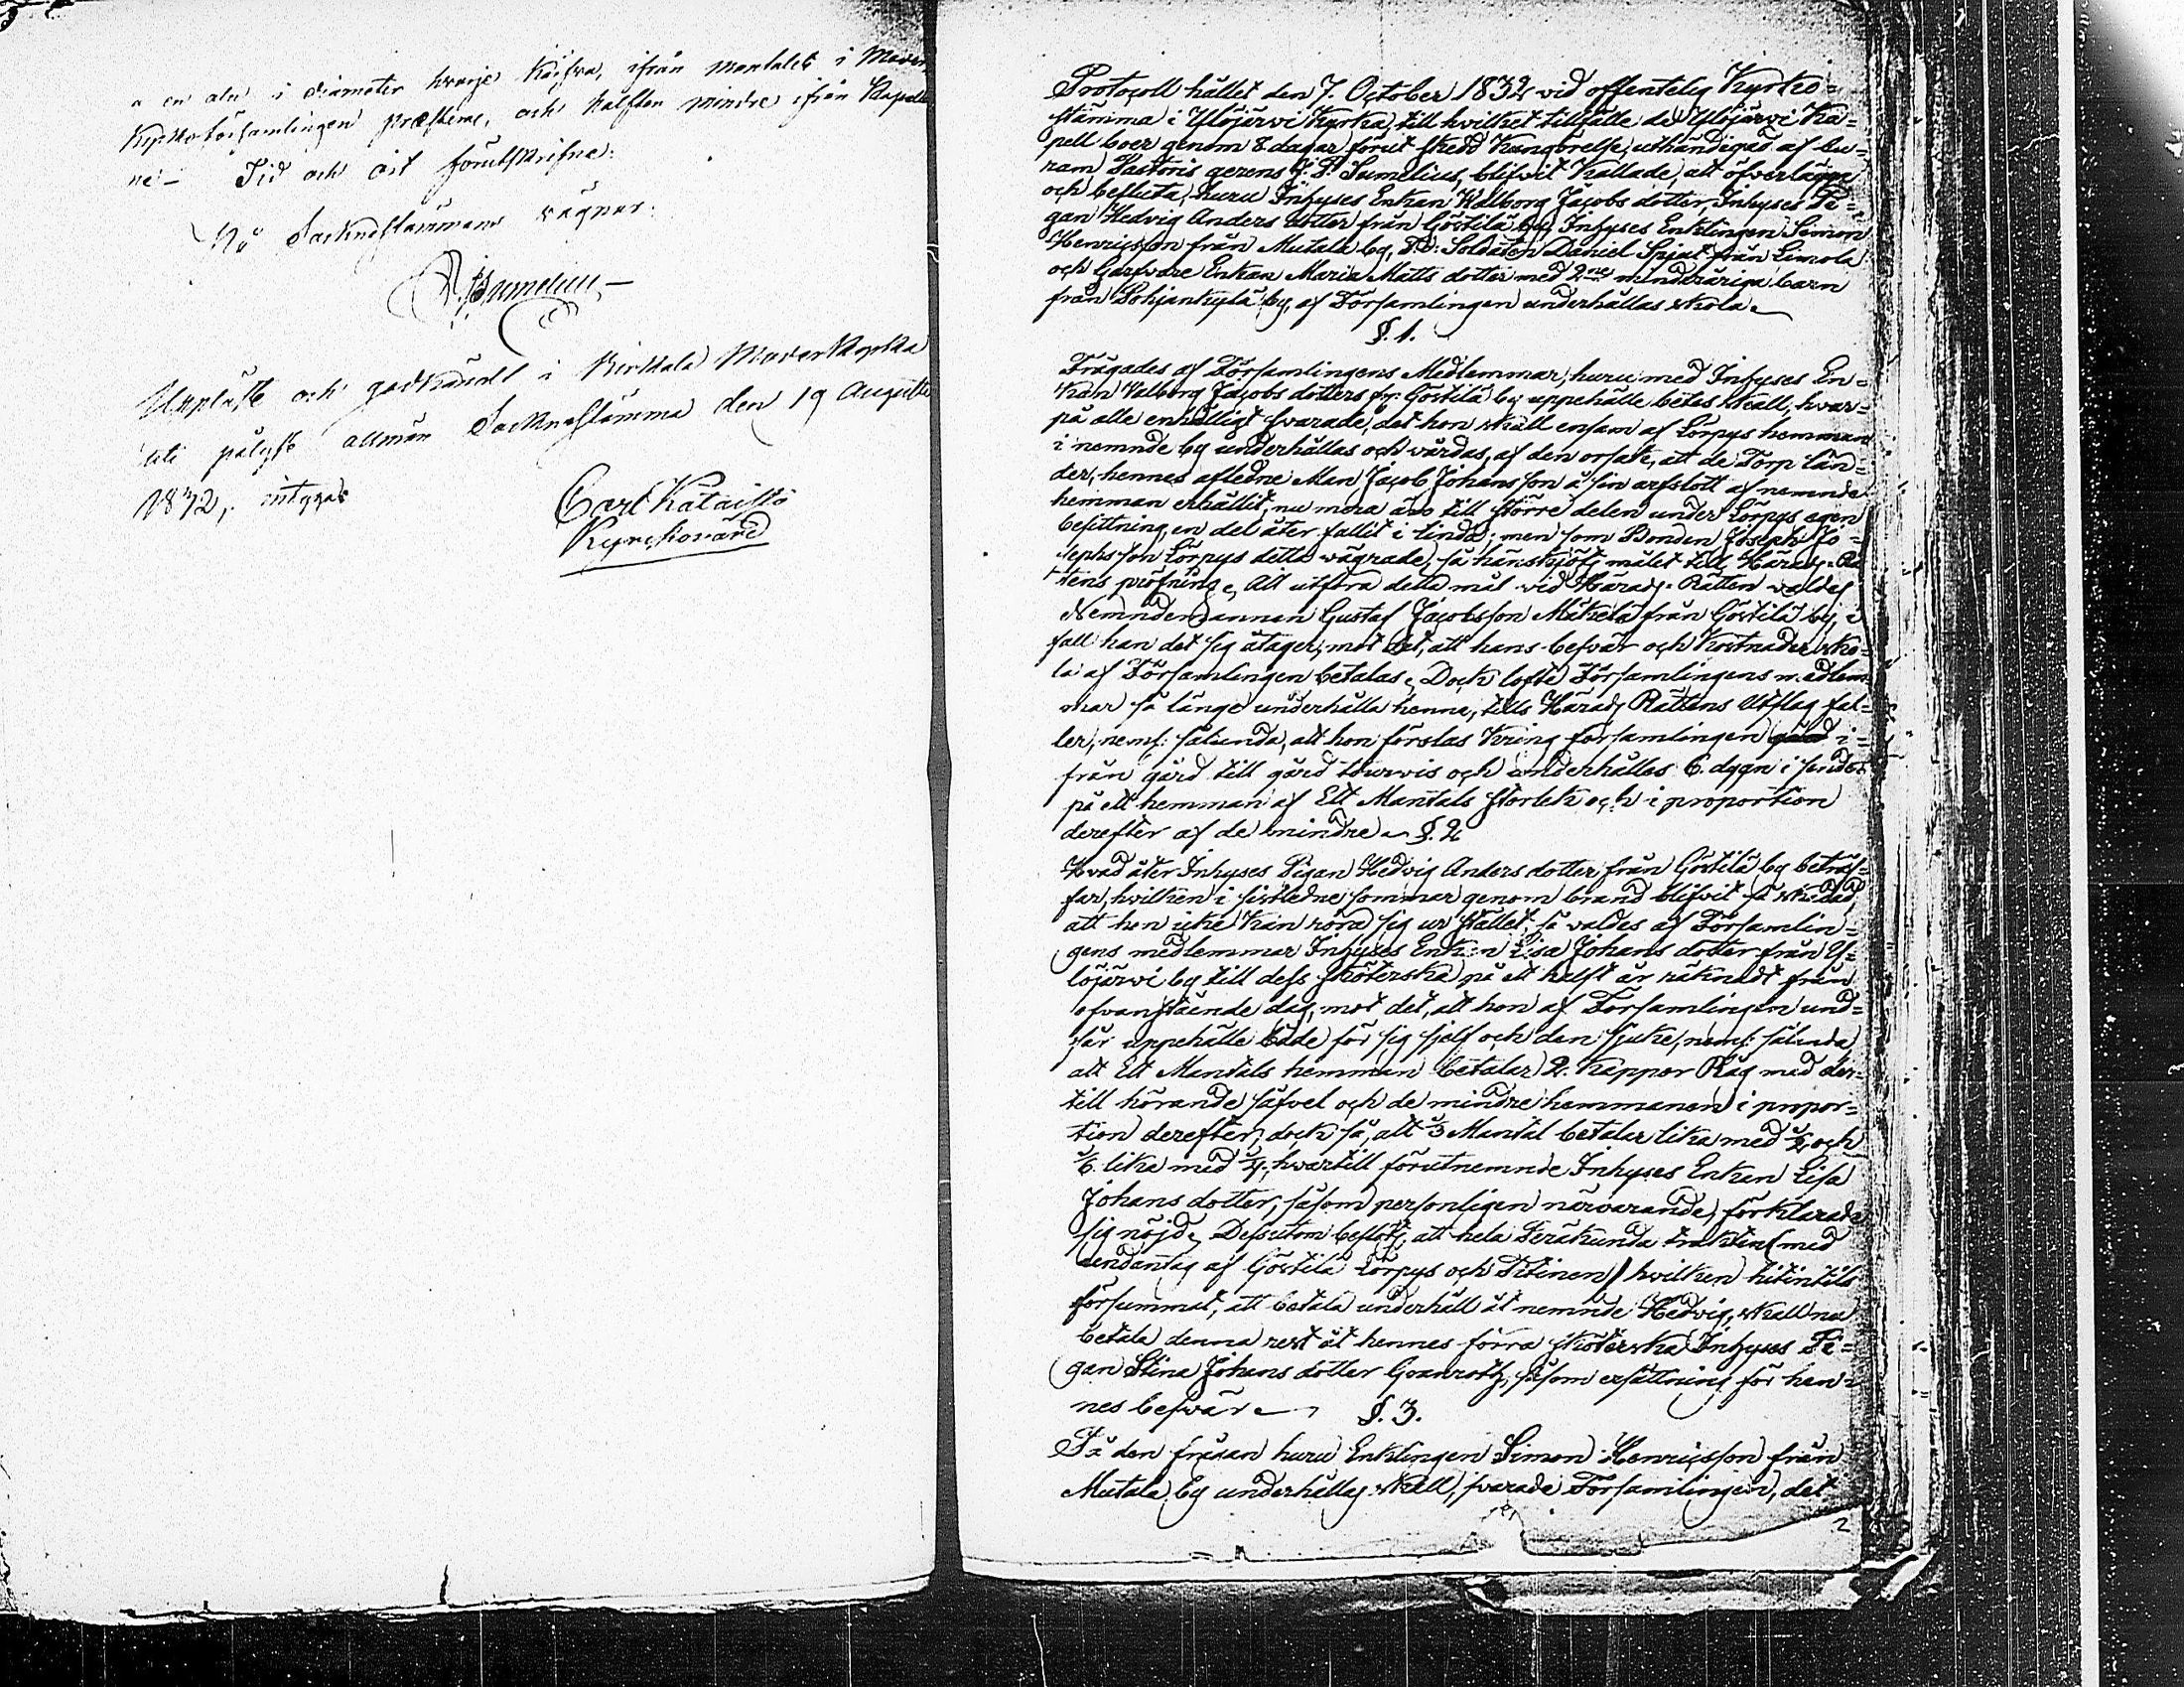 en aln i diameter hvarje kärfva, ifrån mantalet i Moder
Kyrkoförsamlingen præstera, och hälften mindre ifrån Kapelle
ne – Tid och ort förutskrifne:
På Socknestämmans vägnar:
Uppläst och godkändt i Birkkala Moderkyrka
uti pålyst allmän Socknestämma den 19 Augusti
1832, intygar
Carl Kataisto
Kyrckovärd
Protocoll hållet den 7. October 1832 vid offentelig Kyrko=
stämma i Ylöjärvi Kyrka, till hvilket tillfälle de Ylöjärvi Ka=
pell boer genom 8 dagar förut skedd Kungörelse, uthändigad af
Pastoris gerens Sumelius, blifvit Kallade, att öfverlägga
och besluta, huru Inhyses Enkan Walborg Jacobs dotter, Inhyses Pi=
gan Hedvig Anders dotter från Göstilä by, Inhyses Enklingen Simon
Henricsson från Mutala by, Soldaten Daniel Spjut från Limola
och Enkan Maria Matts dotter med 2ne minderåriga barn
från Pohjankylä by, af Församlingen underhållas skola.
§. 1.
Frågades af Församlingens Medlemmar, huru med Inhyses En=
kan Valborg Jacobs dotters fr: Göstilä by uppehälle bötas skall, hvar=
på alle enhälligt svarade, det hon skall ensam af Lörpys hemman
i nemnde by underhållas och vårdas, af den orsak, att de Torp län=
der, hennes afledne Man Jacob Johansson å sin arfslott af nemnde
hemman erhållit, nu mera äro till större delen under Lörpys egen
besittning, en del åter fallit i linda; men som Bonden Joseph Jo=
sephsson Lörpys detta vägrade, så hänskjöts målet till Härads-Rä
tens pröfning. Att utföra detta mål vid Härads-Rätten valdes
Nemndemannen Gustaf Jacobsson Mäkelä från Göstilä by, i
fall han det sig åtager, mot det, att hans besvär och Kostnader sko=
la af Församlingen betalas. Dock lofte Församlingens medlem
mar så länge underhålla henne, tills Härads Rättens Utslag fal=
ler, neml: sålunda, att hon förslas kring församlingen i=
från gård till gård tourvis och underhålles 6. dygn i sender
på ett hemman af Ett Mantals storlek och i proportion
derefter af de mindre. §. 2
Hvad åter Inhyses Pigan Hedvig Anders dotter från Göstilä by beträf=
far, hvilken i sistledne sommar genom brand blifvit så skadad,
att hon icke kan röra sig ur stället, så valdes af Församlin=
gens medlemmar Inhyses Enkan Lisa Johans dotter från Y=
löjärvi by till dess sköterska på ett halft år räknadt från
ofvanstående dag, mot det, att hon af Församlingen und=
får uppehälle både för sig sjelf och den sjuke, neml: sålunda
att Ett Mantals hemman betalar 2. Kappor Råg med der=
till hörande säfvel och de mindre hemmanen i propor=
tion derefter, dock så, att 1/3 Mantal betalar lika med 1/2, och
1/6. lika med 1/4, hvartill förutnemnde Inhyses Enkan Lisa
Johans dotter, såsom personligen närvarande, förklarade
sig nöjd. Dessutom beslöts, att hela Peräkunda trakten (med
undantag af Göstilä Lörpys och Pitinen) hvilken hitintils
försummat, att betala underhåll åt nemnde Hedvig, skall nu
betala denna rest åt hennes förra sköterska Inhyses Pi=
gan Stina Johans dotter Granroth, såsom ersättning för hen=
nes besvär. §. 3.
På den frågan huru Enklingen Simon Henricsson från
Mutala by underhållas skall, svarade Församlingen, det
2